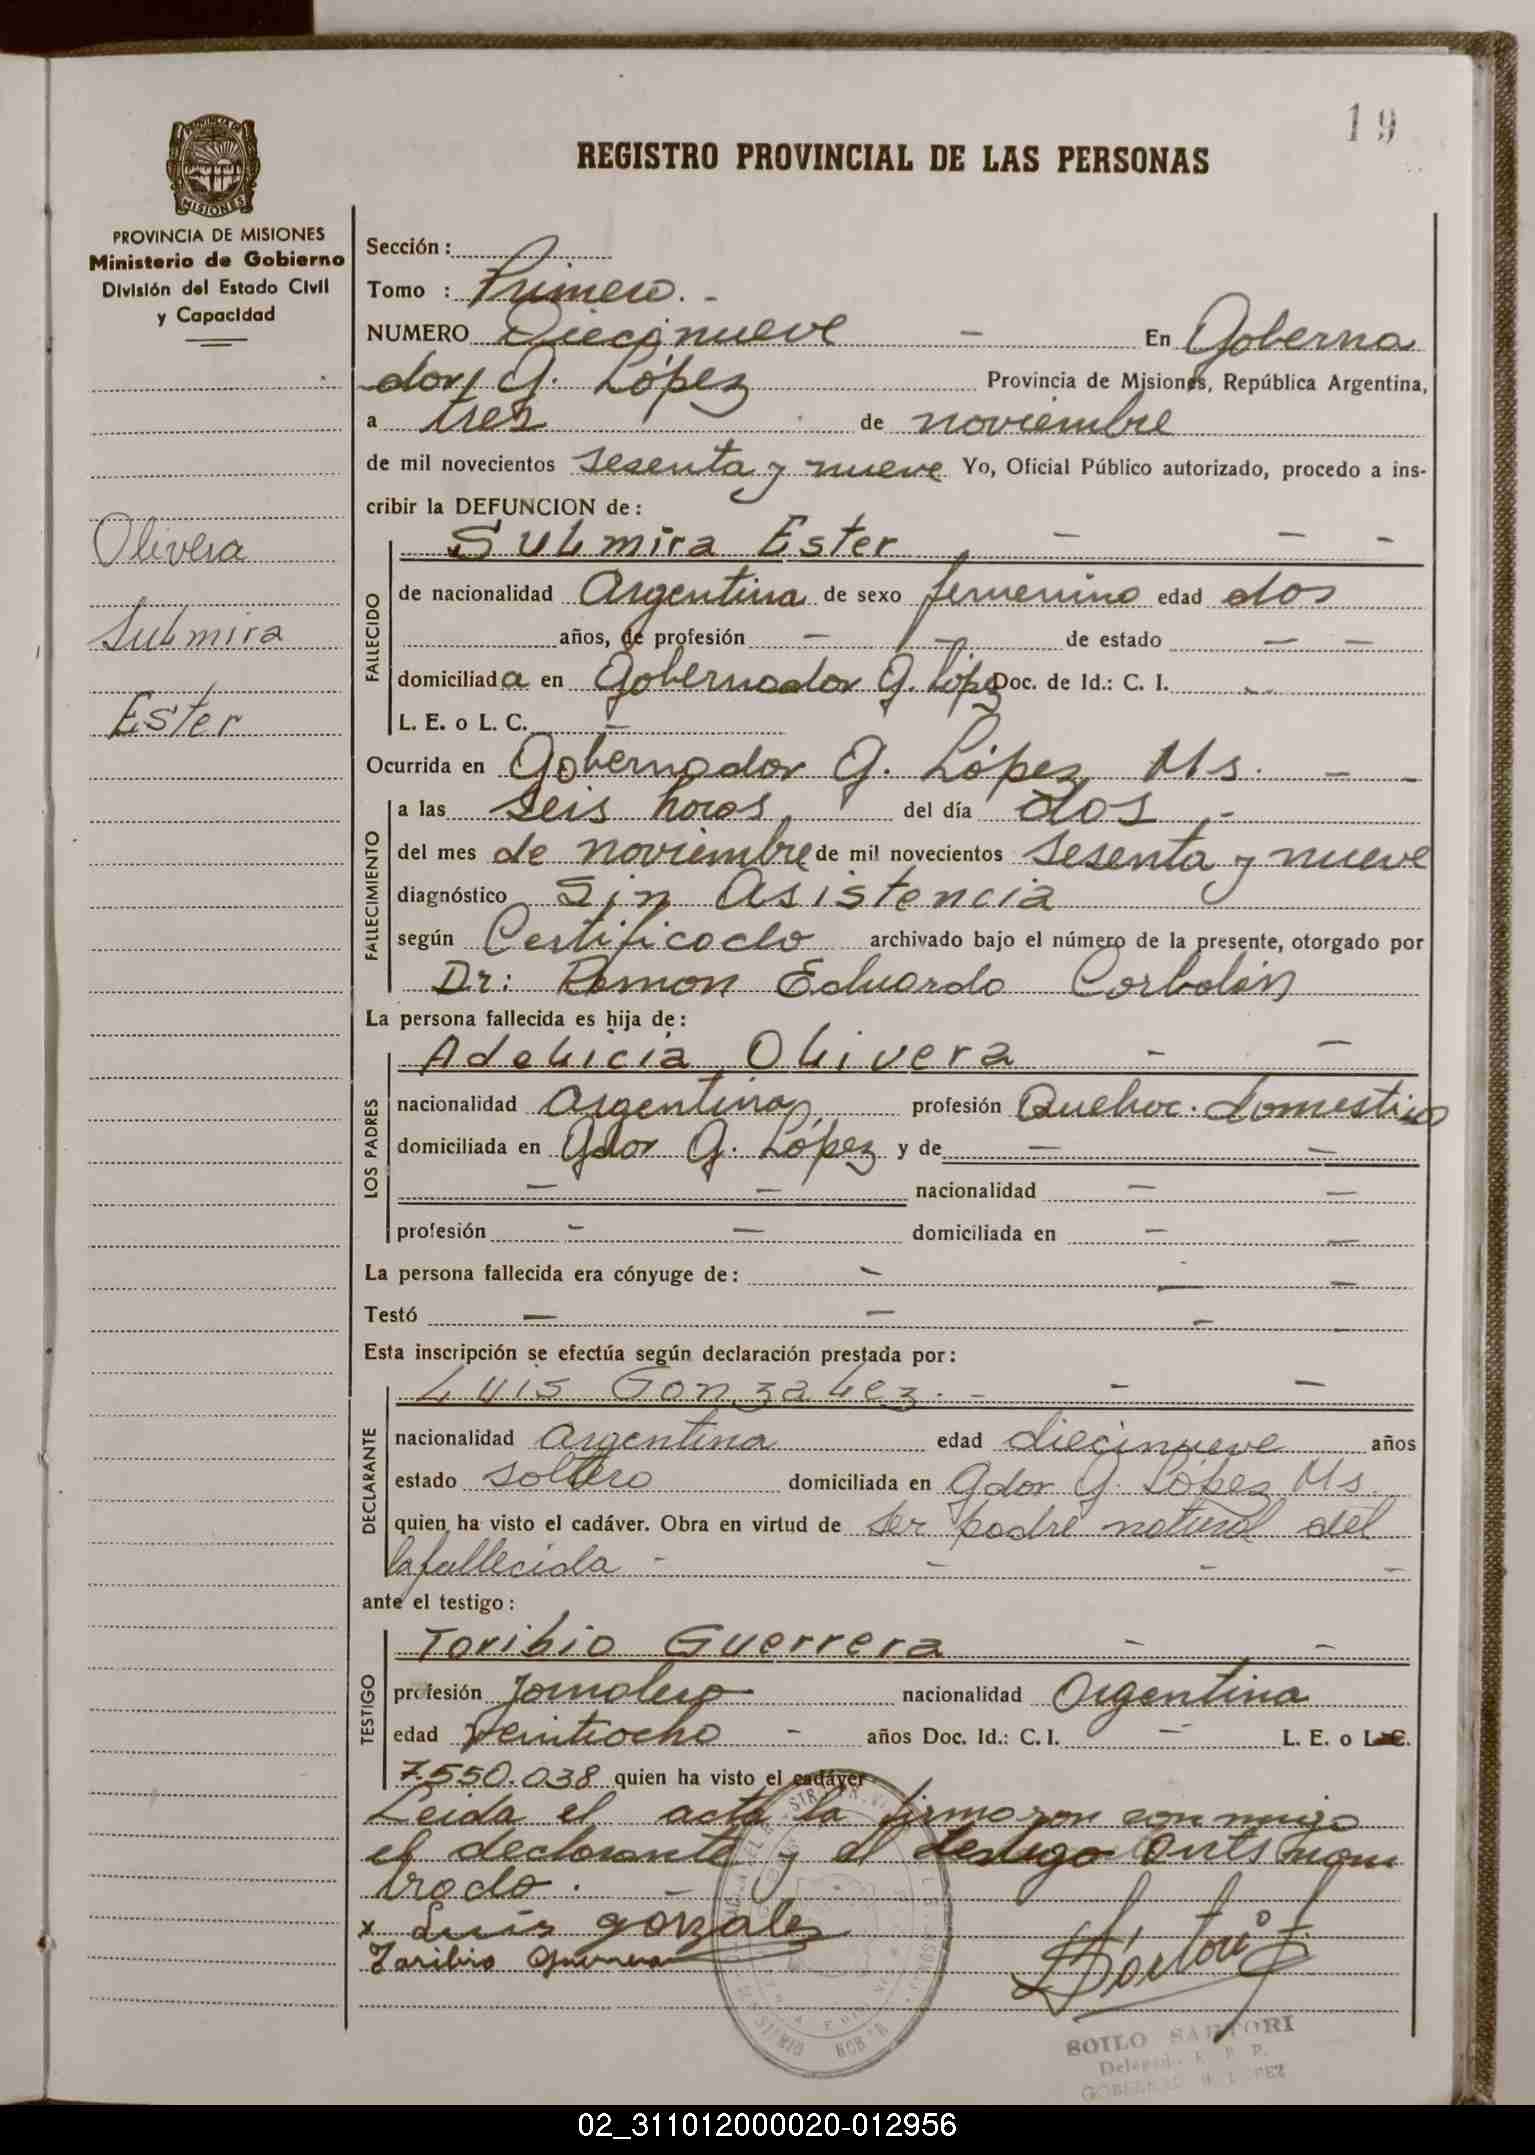 19
REGISTRO PROVINCIAL DE LAS PERSONAS
PROVINCIA DE MISIONES
Ministerio de Gobierno
División del Estado Civil
y Capacidad
Olivera
Sulmira
Ester
Sección :
Tomo : Primero. -
NUMERO Diecinueve - En Goberna
dor G. López Provincia de Misiones, República Argentina,
a tres de noviembre
de mil novecientos sesenta y nueve Yo, Oficial Público autorizado, procedo a ins-
cribir la DEFUNCION de :
FALLECIDO
Sulmira Ester - - -
de nacionalidad Argentina de sexo femenino edad dos
años, de profesión - - de estado - -
domiciliada en Gobernador G. López Doc. de Id.: C. I.
L. E. o L. C. -
Ocurrida en Gobernador G. López Ms. - -
FALLECIMIENTO
a las seis horas del día dos -
del mes de noviembre de mil novecientos sesenta y nueve
diagnóstico Sin Asistencia
según Certificado archivado bajo el número de la presente, otorgado por
Dr: Ramon Eduardo Corbalán
La persona fallecida es hija de :
LOS PADRES
Adelicia Olivera - -
nacionalidad Argentina profesión Quehac. domestico
domiciliada en Gdor G. López y de - -
- - nacionalidad - -
profesión - - domiciliada en - -
La persona fallecida era cónyuge de : - - -
Testó - - -
Esta inscripción se efectúa según declaración prestada por :
DECLARANTE
Luis Gonzalez. - - -
nacionalidad argentina edad diecinueve años
estado soltero domiciliada en Gdor G. López Ms.
quien ha visto el cadáver. Obra en virtud de ser padre natural del
la fallecida - - - -
ante el testigo :
TESTIGO
Toribio Guerrera - -
profesión Jornalero nacionalidad Argentina
edad veintiocho - años Doc. Id.: C. I. - L. E. o L. C.
7.550.038 quien ha visto el cadáver
Leida el acta la firmaron conmigo
el declarante y el testigo antes nom
brado. -
x Luis gonzalez
Toribio Guerrera
SOILO SARTORI
02_311012000020-012956